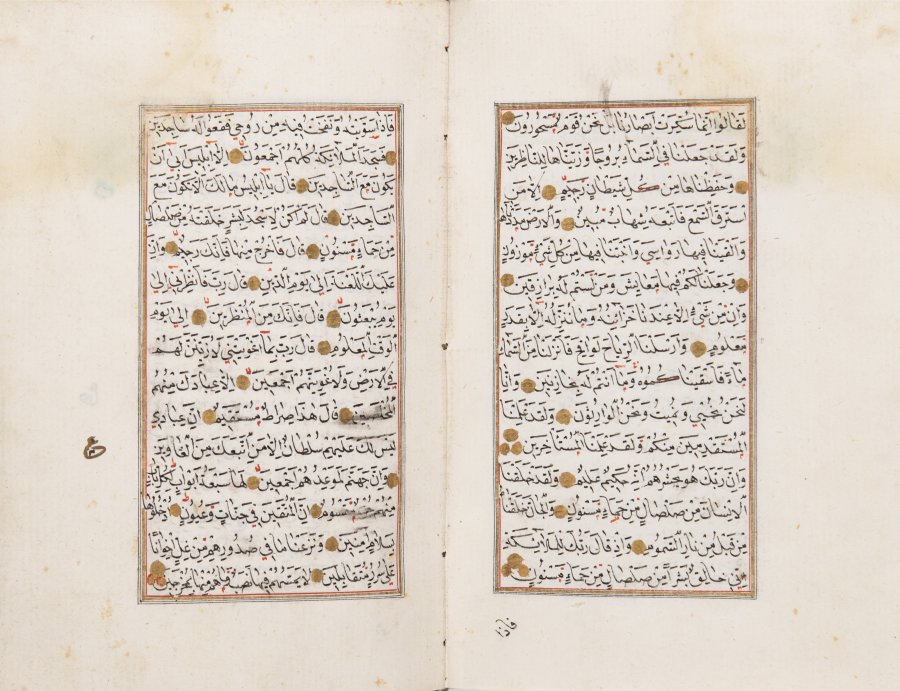 لَقَالُوا اِنَّمَا سُكِّرَتْ اَبْصَارُنَا بَلْ نَحْنُ قَوْمٌ مَسْحُورُونَ
وَلَقَدْ جَعَلْنَا فِي السَّمَاءِ بُرُوجًا وَزَيَّنَّاهَا لِلنَّاظِرِينَ
وَحَفِظْنَاهَا مِنْ كُلِّ شَيْطَانٍ رَجِيمٍ اِلَّا مَنِ
اسْتَرَقَ السَّمْعَ فَاَتْبَعَهُ شِهَابٌ مُبِينٌ وَالْاَرْضَ مَدَدْنَاهَا
وَاَلْقَيْنَا فِيهَا رَوَاسِيَ وَاَنْبَتْنَا فِيهَا مِنْ كُلِّ شَيْءٍ مَوْزُونٍ
وَجَعَلْنَا لَكُمْ فِيهَا مَعَايِشَ وَمَنْ لَسْتُمْ لَهُ بِرَازِقِينَ
وَاِنْ مِنْ شَيْءٍ اِلَّا عِنْدَنَا خَزَائِنُهُ وَمَا نُنَزِّلُهُ اِلَّا بِقَدَرٍ
مَعْلُومٍ وَاَرْسَلْنَا الرِّيَاحَ لَوَاقِحَ فَاَنْزَلْنَا مِنَ السَّمَاءِ
مَاءً فَاَسْقَيْنَاكُمُوهُ وَمَا اَنْتُمْ لَهُ بِخَازِنِينَ وَاِنَّا
لَنَحْنُ نُحْيِي وَنُمِيتُ وَنَحْنُ الْوَارِثُونَ وَلَقَدْ عَلِمْنَا
الْمُسْتَقْدِمِينَ مِنْكُمْ وَلَقَدْ عَلِمْنَا الْمُسْتَاْخِرِينَ
وَاِنَّ رَبَّكَ هُوَ يَحْشُرُهُمْ اِنَّهُ حَكِيمٌ عَلِيمٌ وَلَقَدْ خَلَقْنَا
الْاِنْسَانَ مِنْ صَلْصَالٍ مِنْ حَمَاءٍ مَسْنُونٍ وَالْجَانَّ خَلَقْنَاهُ
مِنْ قَبْلُ مِنْ نَارِ السَّمُومِ وَاِذْ قَالَ رَبُّكَ لِلْمَلَائِكَةِ
اِنِّي خَالِقٌ بَشَرًا مِنْ صَلْصَالٍ مِنْ حَمَاءٍ مَسْنُونٍ
فاذا
فَاِذَا سَوَّيْتُهُ وَنَفَخْتُ فِيهِ مِنْ رُوحِي فَقَعُوا لَهُ سَاجِدِينَ
فَسَجَدَ الْمَلَائِكَةُ كُلُّهُمْ اَجْمَعُونَ اِلَّا اِبْلِيسَ اَبَى اَنْ
يَكُونَ مَعَ السَّاجِدِينَ قَالَ يَا اِبْلِيسُ مَا لَكَ اَلَّا تَكُونَ مَعَ
السَّاجِدِينَ قَالَ لَمْ اَكُنْ لِاَسْجُدَ لِبَشَرٍ خَلَقْتَهُ مِنْ صَلْصَالٍ
مِنْ حَمَاءٍ مَسْنُونٍ قَالَ فَاخْرُجْ مِنْهَا فَاِنَّكَ رَجِيمٌ وَاِنَّ
عَلَيْكَ اللَّعْنَةَ اِلَى يَوْمِ الدِّينِ قَالَ رَبِّ فَاَنْظِرْنِي اِلَى
يَوْمِ يُبْعَثُونَ قَالَ فَاِنَّكَ مِنَ الْمُنْظَرِينَ اِلَى يَوْمِ
الْوَقْتِ الْمَعْلُومِ قَالَ رَبِّ بِمَا اَغْوَيْتَنِي لَاُزَيِّنَنَّ لَهُمْ
فِي الْاَرْضِ وَلَاُغْوِيَنَّهُمْ اَجْمَعِينَ اِلَّا عِبَادَكَ مِنْهُمُ
الْمُخْلَصِينَ قَالَ هَذَا صِرَاطٌ عَلَيَّ مُسْتَقِيمٌ اِنَّ عِبَادِي
لَيْسَ لَكَ عَلَيْهِمْ سُلْطَانٌ اِلَّا مَنِ اتَّبَعَكَ مِنَ الْغَاوِينَ
وَاِنَّ جَهَنَّمَ لَمَوْعِدُهُمْ اَجْمَعِينَ لَهَا سَبْعَةُ اَبْوَابٍ لِكُلِّ بَابٍ
مِنْهُمْ جُزْءٌ مَقْسُومٌ اِنَّ الْمُتَّقِينَ فِي جَنَّاتٍ وَعُيُونٍ اُدْخُلُوهَا
بِسَلَامٍ اٰمِنِينَ وَنَزَعْنَا مَا فِي صُدُورِهِمْ مِنْ غِلٍّ اِخْوَانًا
عَلَى سُرُرٍ مُتَقَابِلِينَ لَا يَمَسُّهُمْ فِيهَا نَصَبٌ وَمَا هُمْ مِنْهَا بِمُخْرَجِينَ